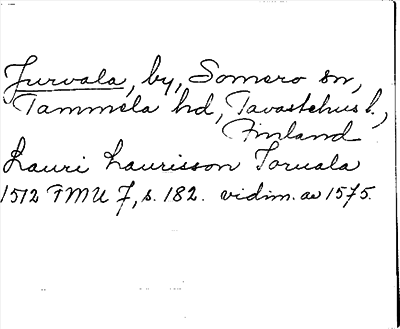 Jurvala, by, Somero sn,
Tammela hd, Tavastehus l.,
Finland
Lauri Laurisson Torvala
1512 FMU 7, s. 182. vidim. av 1575.